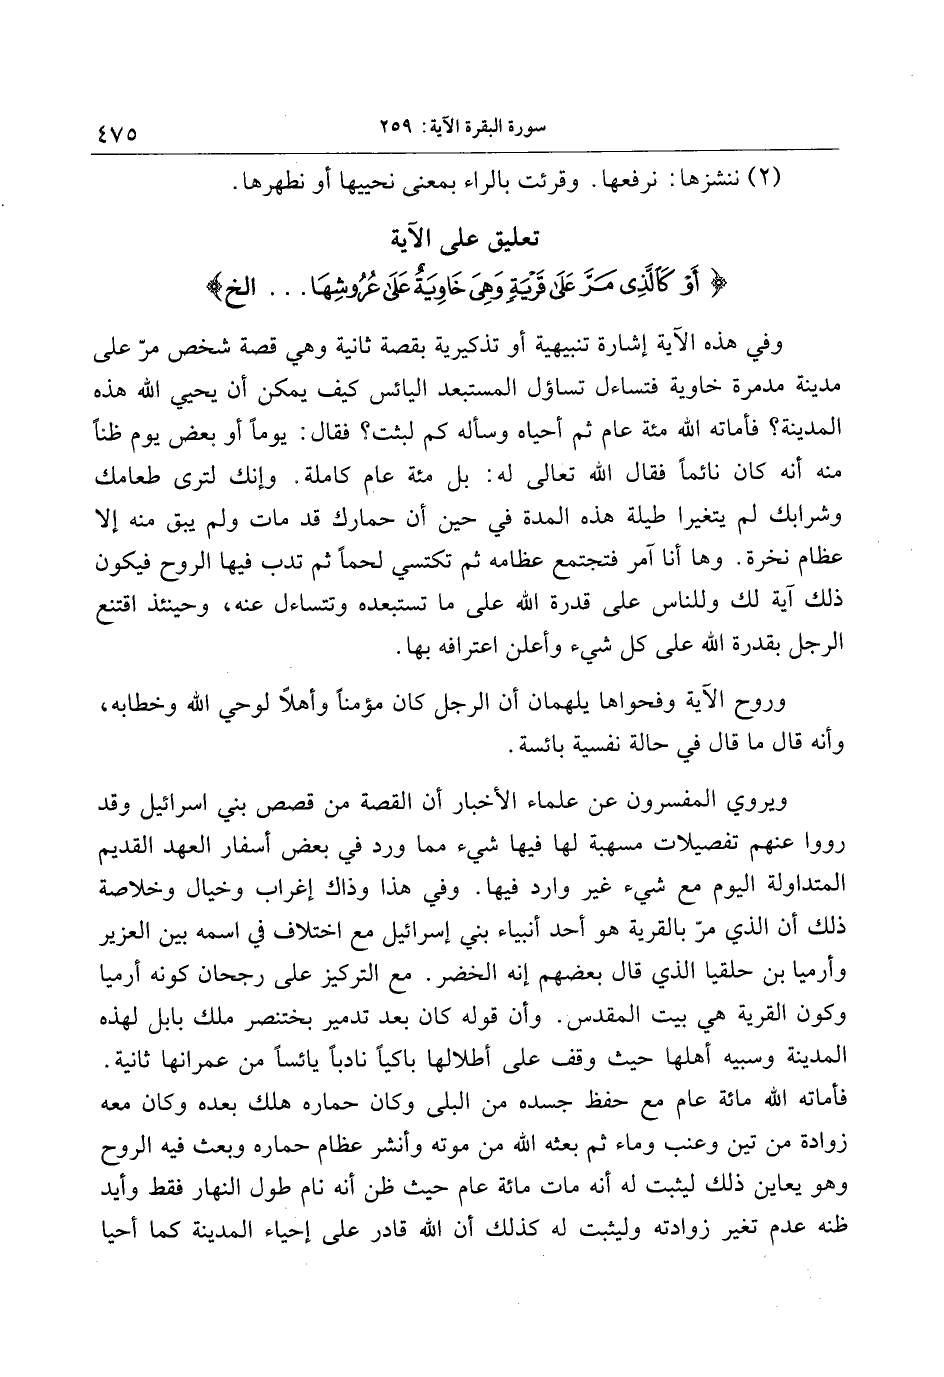 سورة البقرة الآية: ٢٥٩ ٤٧٥
(٢) ننشزها: نرفعها. وقرئت بالراء بمعنى نحييها أو نطهرها.
تعليق على الآية
﴿ أَوْ كَالَّذِى مَرَّ عَلَىٰ قَرْيَةٍ وَهِىَ خَاوِيَةٌ عَلَىٰ عُرُوشِهَا... الخ﴾
وفي هذه الآية إشارة تنبيهية أو تذكيرية بقصة ثانية وهي قصة شخص مرّ على
مدينة مدمرة خاوية فتساءل تساؤل المستبعد اليائس كيف يمكن أن يحيي الله هذه
المدينة؟ فأماته الله مئة عام ثم أحياه وسأله كم لبثت؟ فقال: يوماً أو بعض يوم ظناً
منه أنه كان نائماً فقال الله تعالى له: بل مئة عام كاملة. وإنك لترى طعامك
وشرابك لم يتغيرا طيلة هذه المدة في حين أن حمارك قد مات ولم يبق منه إلا
عظام نخرة. وها أنا آمر فتجتمع عظامه ثم تكتسي لحماً ثم تدب فيها الروح فيكون
ذلك آية لك وللناس على قدرة الله على ما تستبعده وتتساءل عنه، وحينئذ اقتنع
الرجل بقدرة الله على كل شيء وأعلن اعترافه بها.
وروح الآية وفحواها يلهمان أن الرجل كان مؤمناً وأهلاً لوحي الله وخطابه،
وأنه قال ما قال في حالة نفسية بائسة.
ويروي المفسرون عن علماء الأخبار أن القصة من قصص بني اسرائيل وقد
رووا عنهم تفصيلات مسهبة لها فيها شيء مما ورد في بعض أسفار العهد القديم
المتداولة اليوم مع شيء غير وارد فيها. وفي هذا وذاك إغراب وخيال وخلاصة
ذلك أن الذي مرّ بالقرية هو أحد أنبياء بني إسرائيل مع اختلاف في اسمه بين العزير
وأرميا بن حلقيا الذي قال بعضهم إنه الخضر. مع التركيز على رجحان كونه أرميا
وكون القرية هي بيت المقدس. وأن قوله كان بعد تدمير بختنصر ملك بابل لهذه
المدينة وسبيه أهلها حيث وقف على أطلالها باكياً نادباً يائساً من عمرانها ثانية.
فأماته الله مائة عام مع حفظ جسده من البلى وكان حماره هلك بعده وكان معه
زوادة من تين وعنب وماء ثم بعثه الله من موته وأنشر عظام حماره وبعث فيه الروح
وهو يعاين ذلك ليثبت له أنه مات مائة عام حيث ظن أنه نام طول النهار فقط وأيد
ظنه عدم تغير زوادته وليثبت له كذلك أن الله قادر على إحياء المدينة كما أحيا